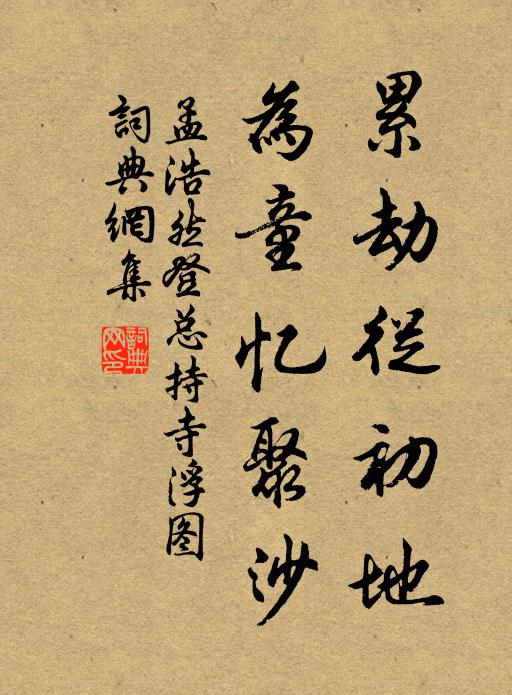 累劫從初地
為童忆聚沙
孟浩然登总持寺浮图
詞典網集
詞典网印